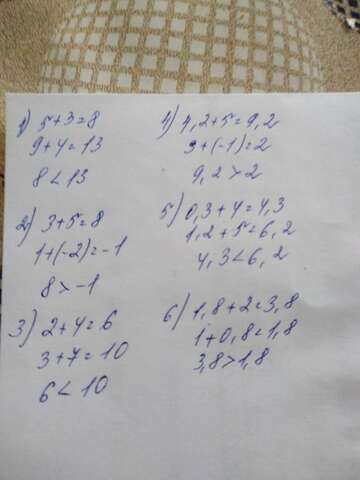 1) 5+3=8
9+4=13
8<13
2) 3+5=8
1+(-2)=-1
8>-1
3) 2+4=6
3+7=10
6<10
4) 4,2+5=9,2
3+(-1)=2
9,2>2
5) 0,3+4=4,3
1,2+5=6,2
4,3<6,2
6) 1,8+2=3,8
1+0,8=1,8
3,8>1,8